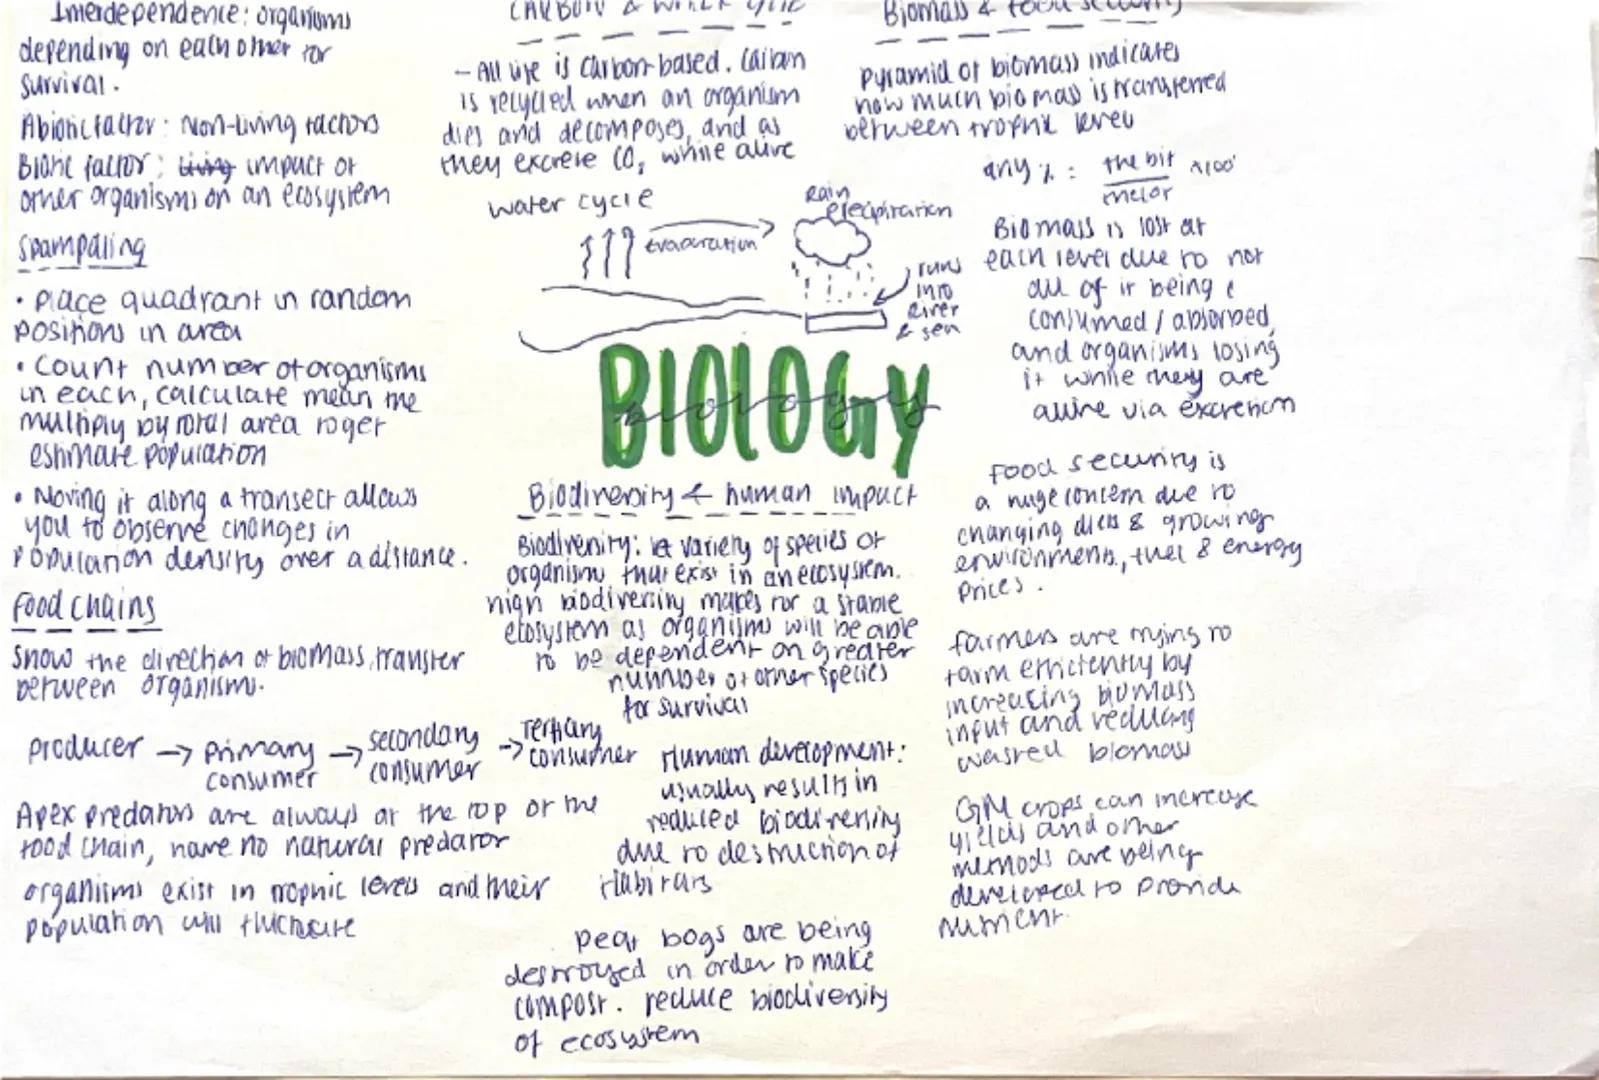 Interdependence: organisms
depending on each other for
survival.
Abiotic factor: Non-living factors
Biotic factor: living impact of
other organisms on an ecosystem
Spampaling
• Place quadrant in random
positions in area
• Count number of organisms
in each, calculate mean the
multiply by total area to get
estimate population
• Moving it along a transect allows
you to observe changes in
population density over a distance.
Food chains
Show the direction of biomass transfer
between organisms.
producer → primary consumer → secondary consumer → Tertiary consumer
Apex predators are always at the top of the
food chain, have no natural predator
organisms exist in trophic levels and their
population will fluctuate
Carbon & water cycle
- All life is carbon-based. Carbon
is recycled when an organism
dies and decomposes, and as
they excrete CO2 while alive
water cycle
Evaporation
Rain
Precipitation
runs
into
River
& sea
BIOLOGY
biology
Biodiversity & human impact
Biodiversity: variety of species of
organisms that exist in an ecosystem.
high biodiversity makes for a stable
ecosystem as organisms will be able
to be dependent on greater
number of other species
for survival
Human development:
usually results in
reduced biodiversity
due to destruction of
Habitats
peat bogs are being
destroyed in order to make
compost. reduce biodiversity
of ecosystem
Biomass & food security
pyramid of biomass indicates
how much biomass is transferred
between trophic level
any % : the bit x100
the lot
Biomass is lost at
each level due to not
all of it being
consumed / absorbed,
and organisms losing
it while they are
alive via excretion
food security is
a huge concern due to
changing diets & growing
environments, fuel & energy
prices.
farmers are trying to
farm efficiently by
increasing biomass
input and reducing
wasted biomass
GM crops can increase
yields and other
methods are being
developed to provide
nutrient.